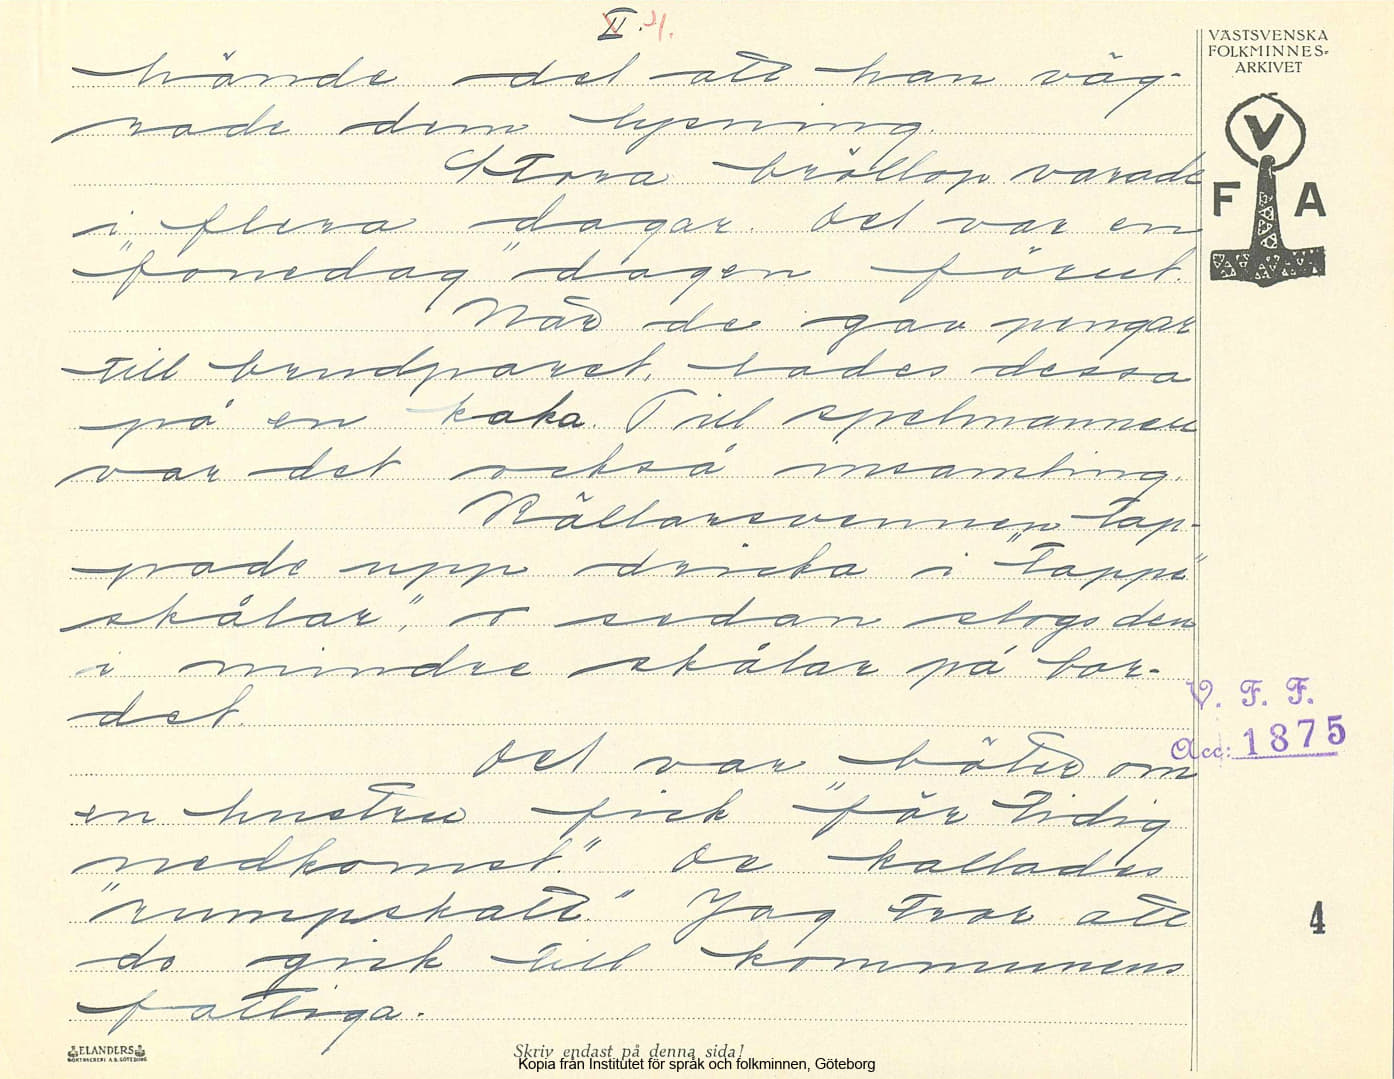 II. 4.
VÄSTSVENSKA
FOLKMINNES-
ARKIVET
V
F A
hände det att han väg-
rade dem lysning.
Stora bröllop varade
i flera dagar. Det var en
"fonedag" dagen förut.
När de gav pengar
till brudparet, lades dessa
på en kaka. Till spelmannen
var det också insamling.
Källarsvennen tap-
pade upp dricka i "tapp"
skålar", o sedan slogs den
i mindre skålar på bor-
det.
V. F. F.
Acc: 1875
Det var böter om
en hustru fick "för tidig
nedkomst." De kallades
"rumpskatt." Jag tror att
4
de gick till kommunens
fattiga.
ELANDERS
BOKTRYCKERI A.B. GÖTEBORG
Skriv endast på denna sida!
Kopia från Institutet för språk och folkminnen, Göteborg